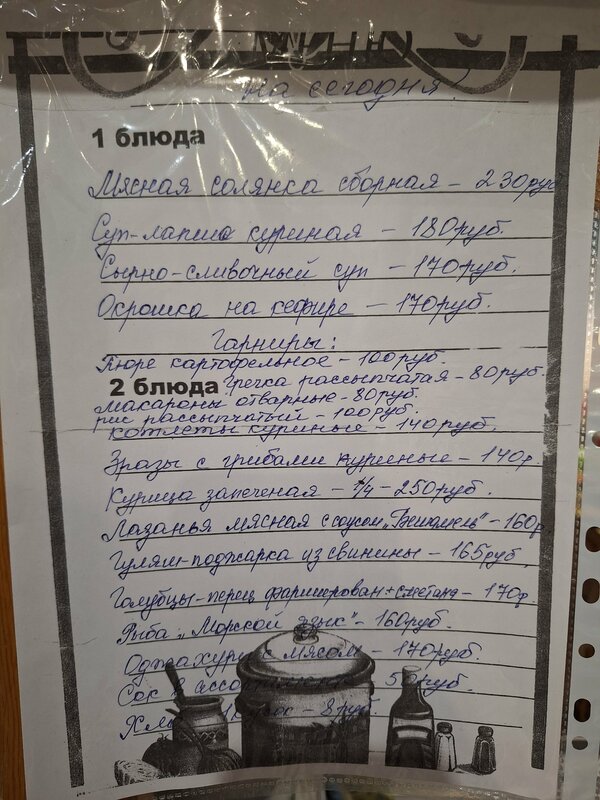 Меню
на сегодня!
1 блюда
Мясная солянка сборная – 230 руб
Суп-лапша куриная – 180 руб.
Сырно-сливочный суп – 170 руб.
Окрошка на кефире – 170 руб.
Гарниры:
Пюре картофельное – 100 руб.
2 блюда Гречка рассыпчатая – 80 руб.
Макароны отварные – 80 руб.
рис рассыпчатый – 100 руб.
Котлеты куриные – 140 руб.
Зразы с грибами куриные – 140р.
Курица запеченая – 1/4 – 250 руб.
Лазанья мясная с соусом „Бешамель" – 160р
Гуляш-поджарка из свинины – 165 руб
Голубцы-перец фарширован + сметана – 170р.
Рыба „Морской язык" – 160 руб.
Оджахури с мясом – 170 руб.
Сок в ассортименте 50 руб.
– 8 руб.